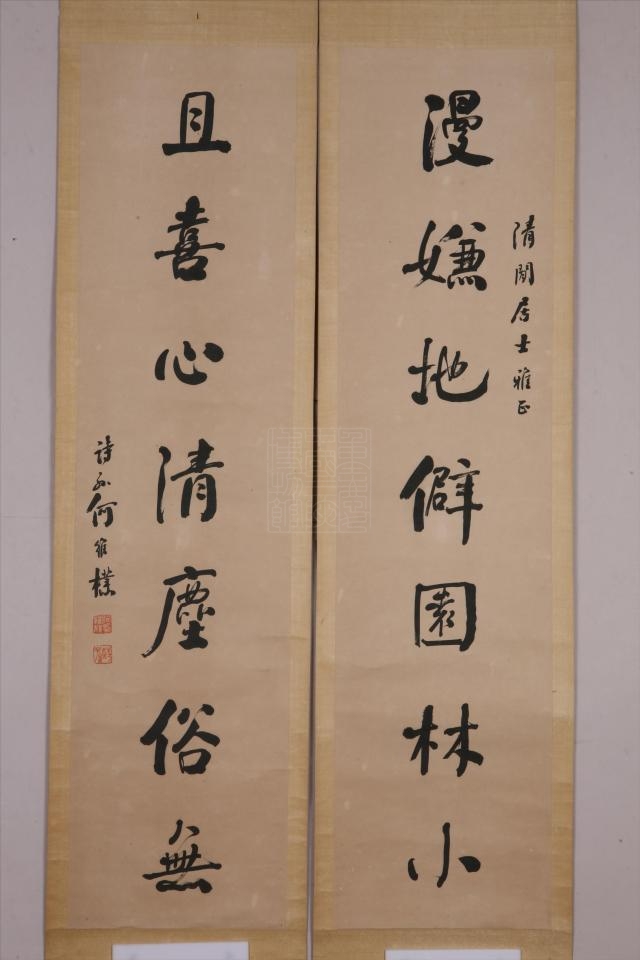 清閟居士雅正
漫嫌地僻園林小
且喜心清塵俗無
詩孫何維樸